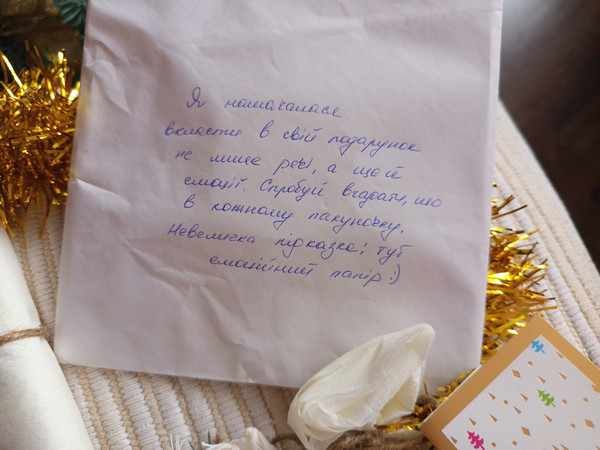 Я намагалася
вкласти в свій подарунок
не лише речі, а ще й
емоції. Спробуй вгадати, що
в кожному пакуночку.
Невеличка підказка: тут
емоційний папір :)